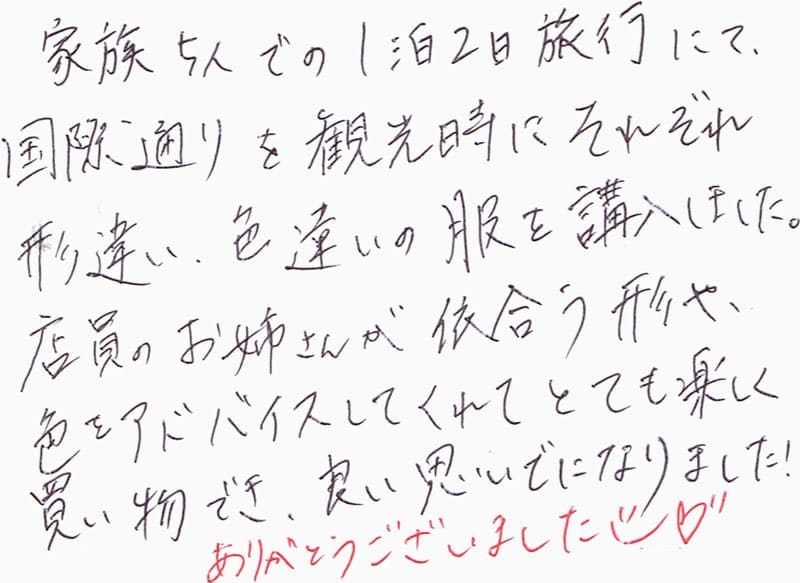 家族5人での1泊2日旅行にて、
国際通りを観光時にそれぞれ
形違い、色違いの服を講入しました。
店員のお姉さんが依合う形や、
色をアドバイスしてくれてとても楽しく
買い物でき、良い思いでになりました!
ありがとうございました